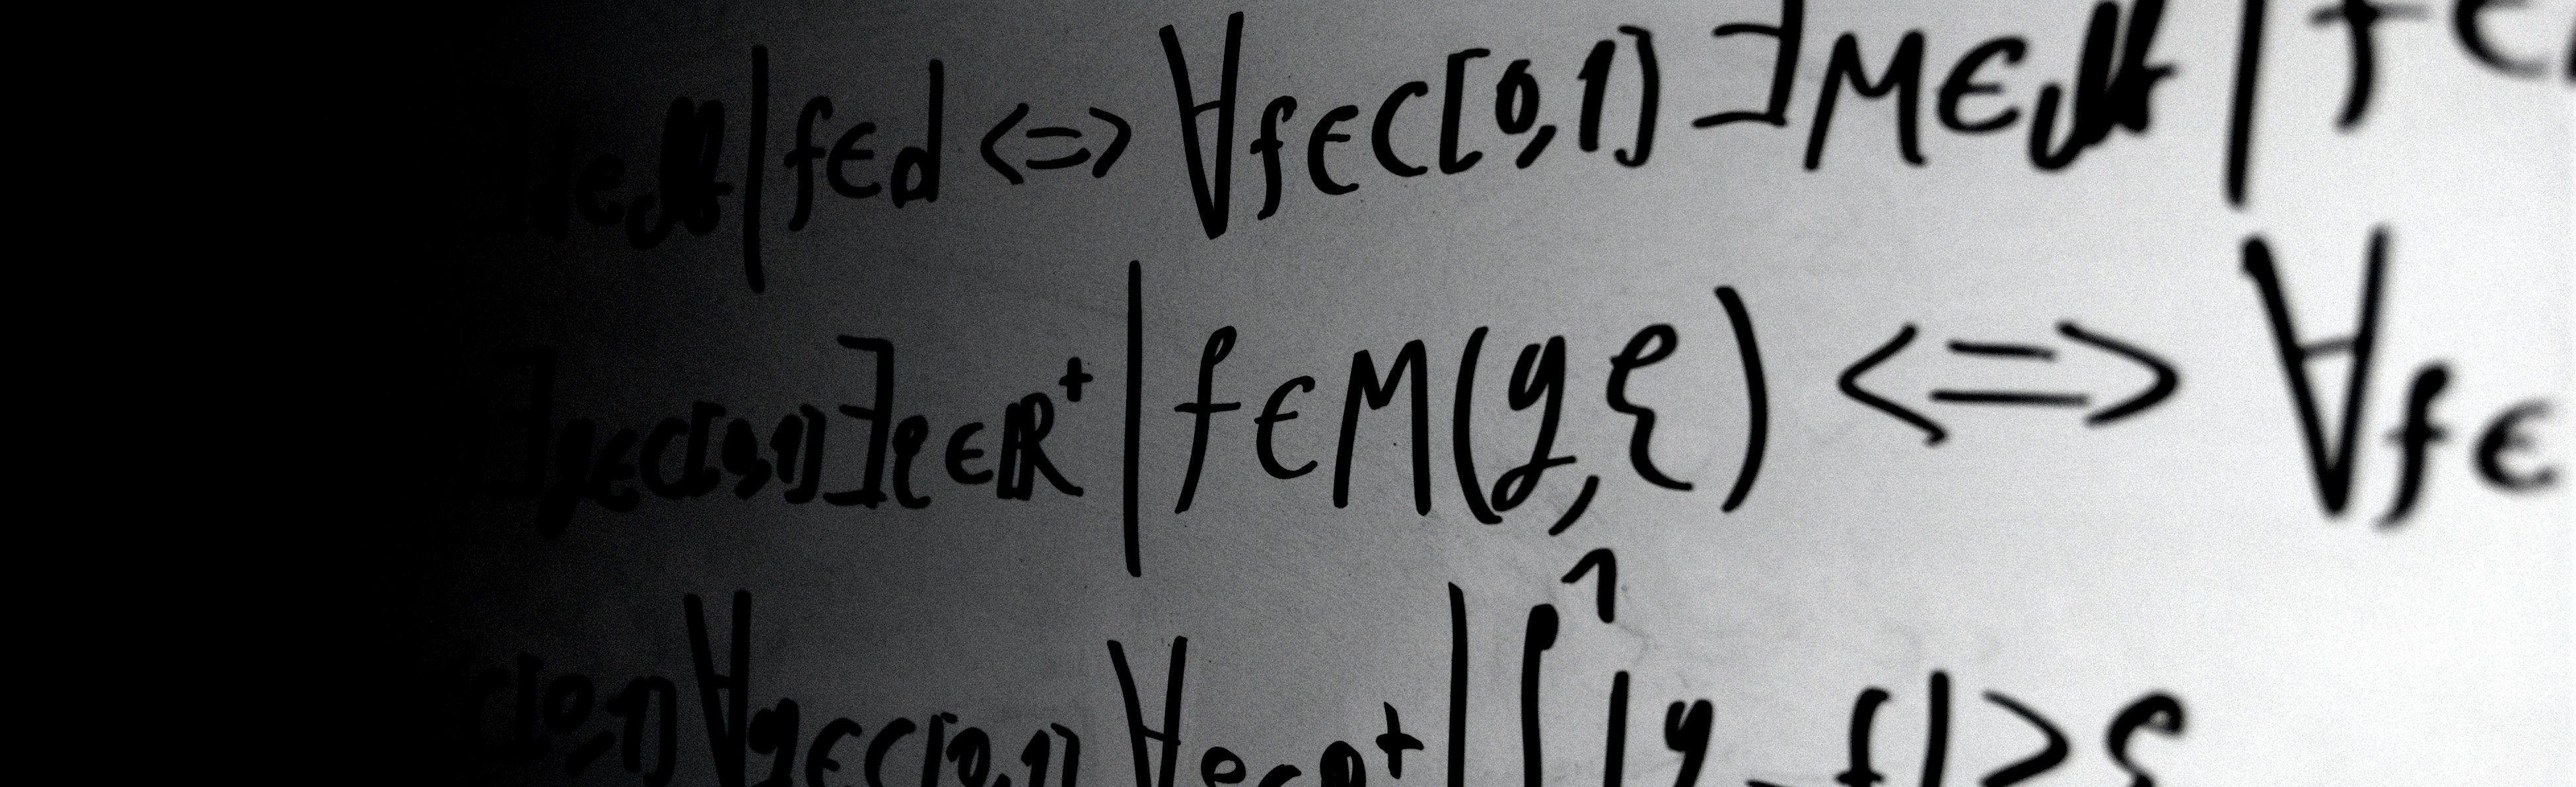 ∈ℳ | f∈d <=> ∀f∈C[0,1] ∃M∈ℳ | f∈
∃g∈C[0,1] ∃ε∈ℝ⁺ | f∈M(g,ε) <=> ∀f∈
C[0,1] ∀g∈C[0,1] ∀ε∈ℝ⁺ | ∫¹|g-f|>ε